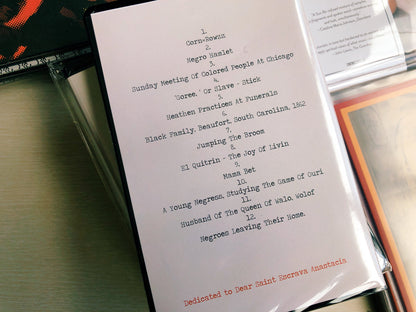 1.
Corn-Rowzz
2.
Negro Hamlet
3.
Sunday Meeting Of Colored People At Chicago
4.
'Goree,' Or Slave - Stick
5.
Heathen Practices At Funerals
6.
Black Family, Beaufort, South Carolina, 1862
7.
Jumping The Broom
8.
El Quitrin - The Joy Of Livin
9.
Mama Bet
10.
A Young Negress, Studying The Game Of Ouri
11.
Husband Of The Queen Of Walo, Wolof
12.
Negroes Leaving Their Home.
Dedicated to Dear Saint Escrava Anastacia